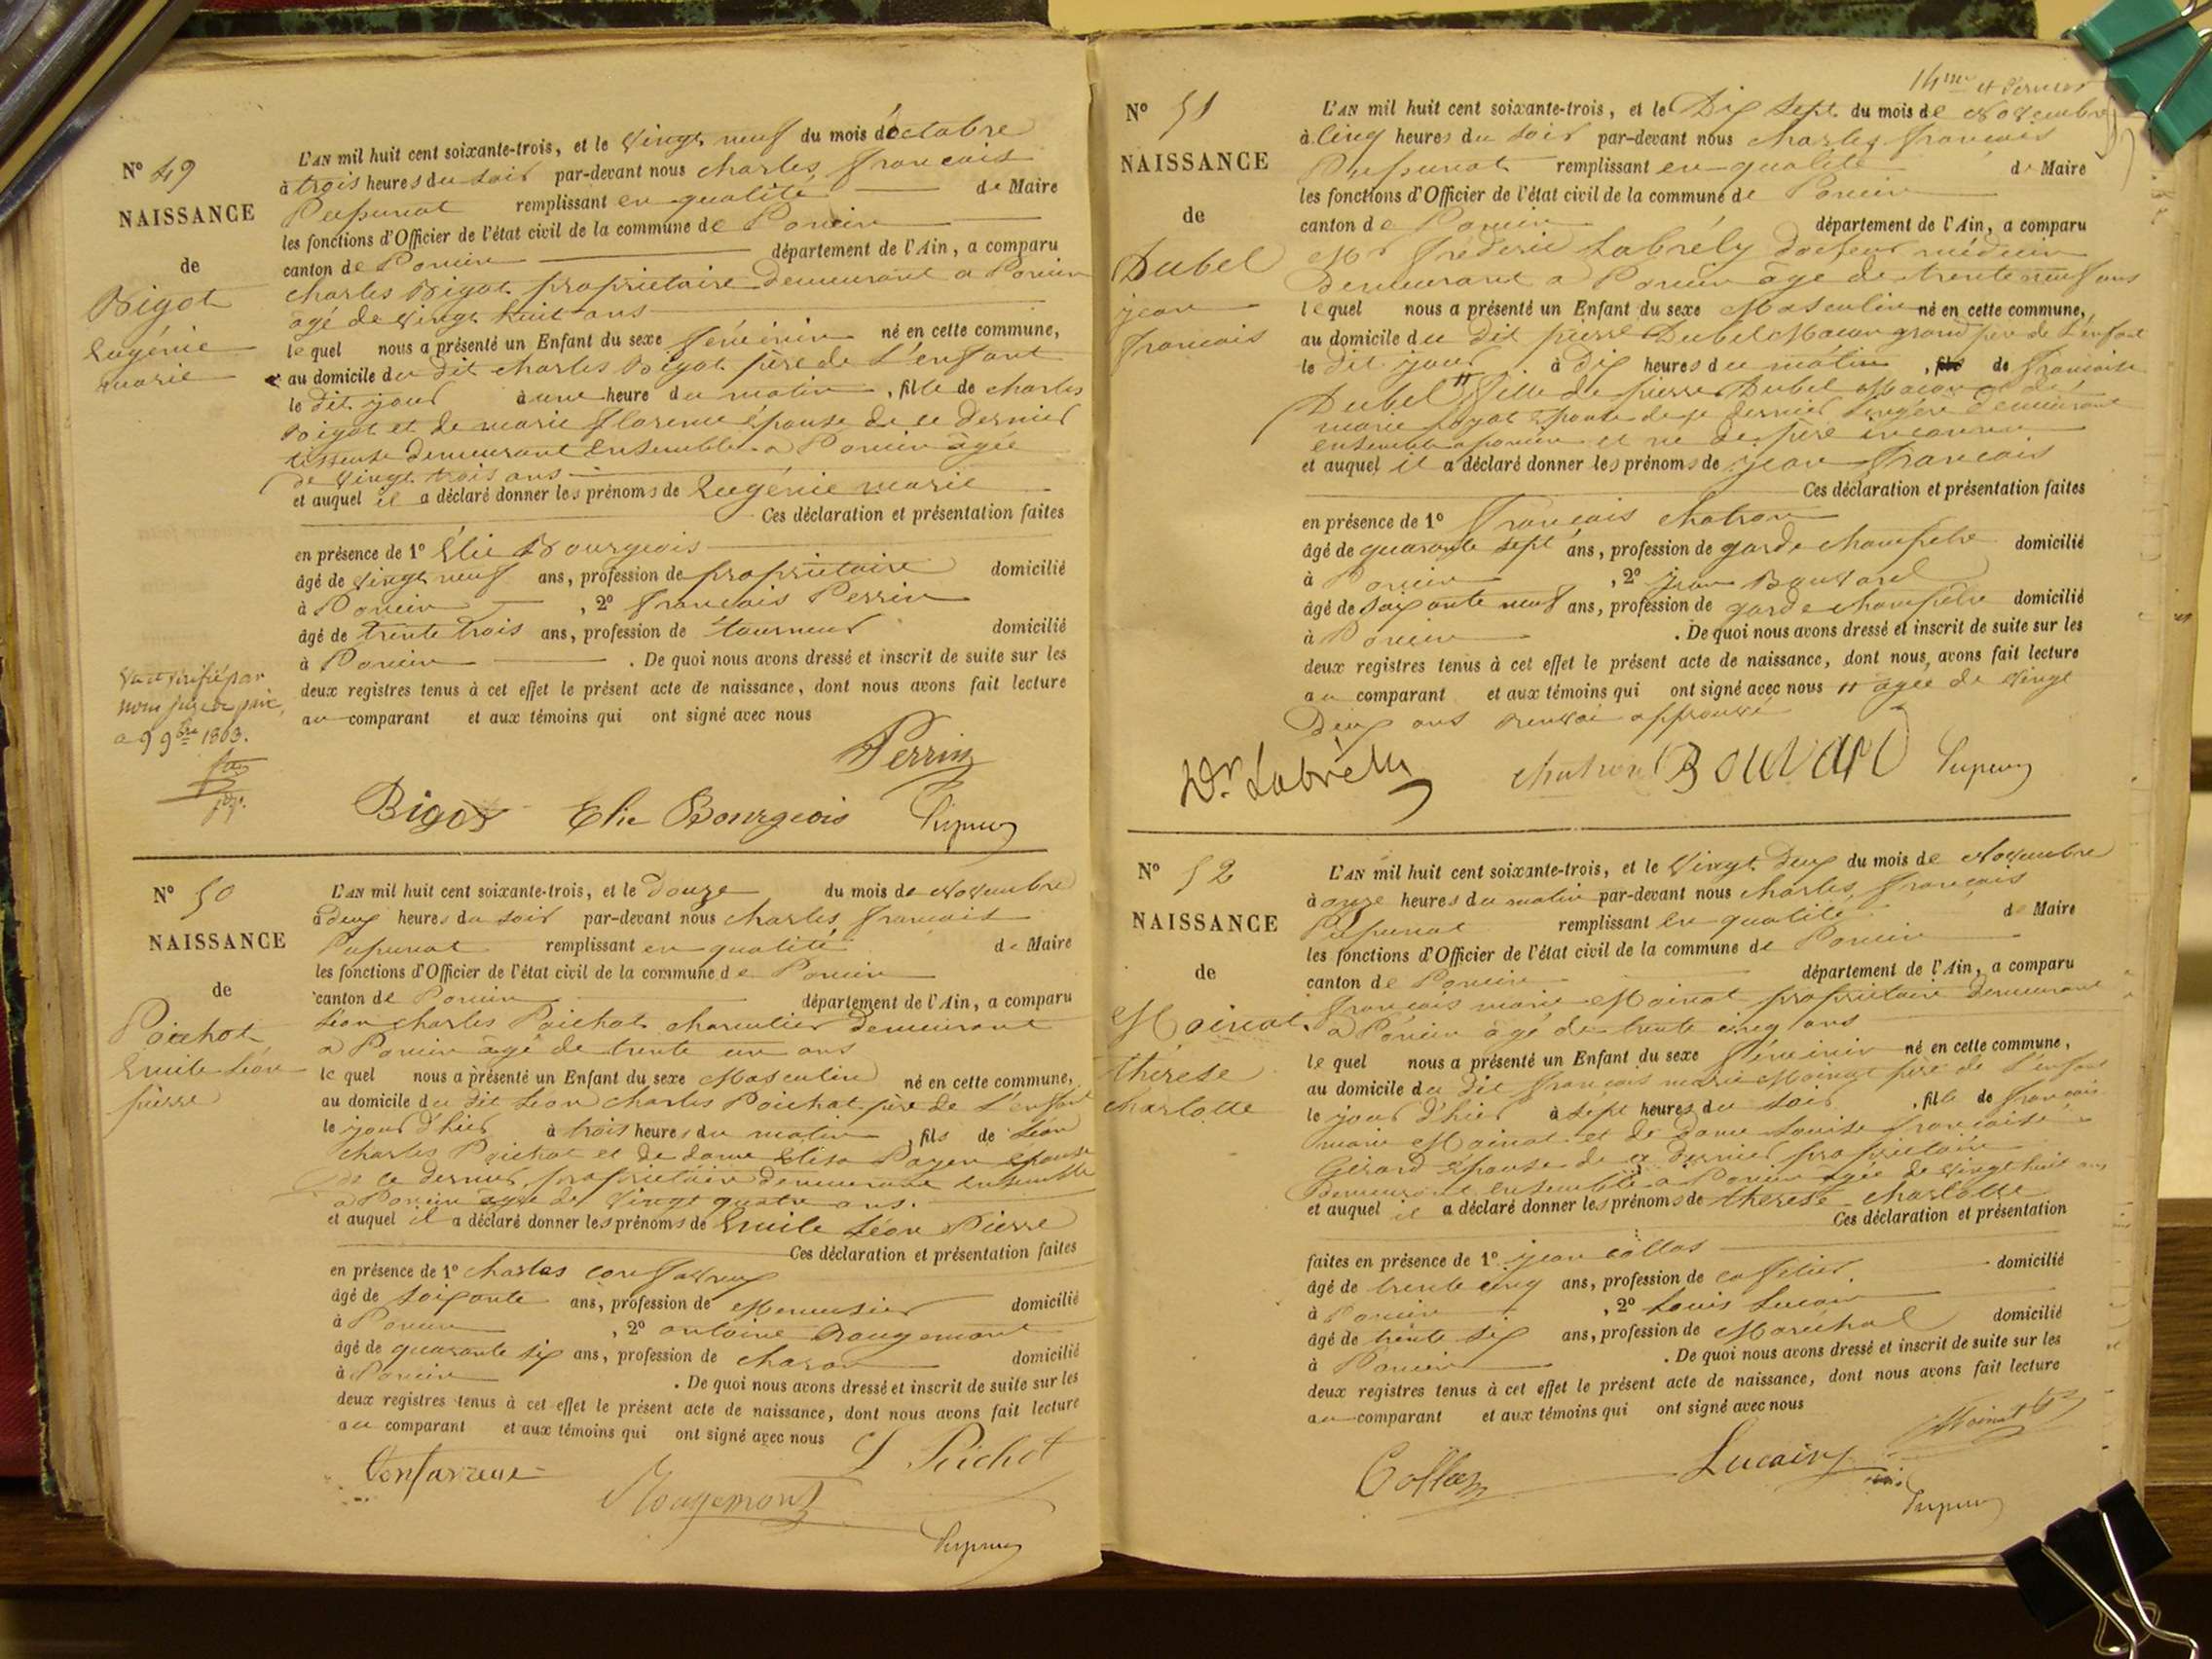 N° 49
NAISSANCE
de
Bigot
Eugénie
marie
L'AN mil huit cent soixante-trois, et le vingt neuf du mois d'octobre
à trois heures du soir par-devant nous charles françois
remplissant en qualité de Maire
les fonctions d'Officier de l'état civil de la commune de Poncin
canton de Poncin département de l'Ain, a comparu
charles Bigot propriétaire demeurant a Poncin
agé de vingt huit ans
lequel nous a présenté un Enfant du sexe féminin né en cette commune,
au domicile du dit charles Bigot père de l'enfant
le dit jour à une heure du matin, fille de charles
Bigot et de marie florence épouse de ce dernier
demeurant ensemble a Poncin agée
de vingt trois ans
et auquel il a déclaré donner les prénoms de Eugénie marie
Ces déclaration et présentation faites
en présence de 1° Elie Bourgeois
âgé de vingt neuf ans, profession de propriétaire domicilié
à Poncin, 2° françois Perrin
âgé de trente trois ans, profession de tourneur domicilié
à Poncin. De quoi nous avons dressé et inscrit de suite sur les
deux registres tenus à cet effet le présent acte de naissance, dont nous avons fait lecture
au comparant et aux témoins qui ont signé avec nous
Vu et vérifié par
nous juge de paix
a 9 9bre 1863.
Perrin
Bigot Elie Bourgeois
N° 50
NAISSANCE
de
Poichot
Emile Léon
pierre
L'AN mil huit cent soixante-trois, et le douze du mois de Novembre
à deux heures du soir par-devant nous charles françois
remplissant en qualité de Maire
les fonctions d'Officier de l'état civil de la commune de Poncin
canton de Poncin département de l'Ain, a comparu
Léon charles Poichot demeurant
a Poncin agé de trente un ans
le quel nous a présenté un Enfant du sexe Masculin né en cette commune,
au domicile du dit Léon charles Poichot père de l'enfant
le jour d'hier à trois heures du matin, fils de Léon
charles Poichot et de dame Elisa Payen épouse
de ce dernier propriétaire demeurant ensemble
a Poncin agée de vingt quatre ans.
et auquel il a déclaré donner les prénoms de Emile Léon Pierre
Ces déclaration et présentation faites
en présence de 1° charles
âgé de soixante ans, profession de Menuisier domicilié
à Poncin, 2° antoine Rougemont
âgé de quarante six ans, profession de charon domicilié
à Poncin. De quoi nous avons dressé et inscrit de suite sur les
deux registres tenus à cet effet le présent acte de naissance, dont nous avons fait lecture
au comparant et aux témoins qui ont signé avec nous
Rougemont
14me et dernier
N° 51
NAISSANCE
de
Dubel
jean
francois
L'AN mil huit cent soixante-trois, et le Dix sept du mois de Novembre
à Cinq heures du soir par-devant nous charles françois
remplissant en qualité de Maire
les fonctions d'Officier de l'état civil de la commune de Poncin
canton de Poncin département de l'Ain, a comparu
Mr frédéric Labrély docteur médecin
demeurant a Poncin agé de trente neuf ans
lequel nous a présenté un Enfant du sexe Masculin né en cette commune,
au domicile du dit pierre Dubel Macon grand père de l'enfant
le dit jour à dix heures du matin, fils de francoise
Dubel fille de pierre Dubel Macon et de
marie épouse de ce dernier lingère demeurant
ensemble a poncin et né de père inconnu
et auquel il a déclaré donner les prénoms de jean francois
Ces déclaration et présentation faites
en présence de 1° françois chatron
âgé de quarante sept ans, profession de garde champêtre domicilié
à Poncin, 2° jean Bouvard
âgé de soixante neuf ans, profession de garde champêtre domicilié
à Poncin. De quoi nous avons dressé et inscrit de suite sur les
deux registres tenus à cet effet le présent acte de naissance, dont nous avons fait lecture
au comparant et aux témoins qui ont signé avec nous agée de vingt
deux ans renvoi approuvé
Dr Labrély chatron Bouvard
N° 52
NAISSANCE
de
Moinat
thérèse
charlotte
L'AN mil huit cent soixante-trois, et le vingt deux du mois de Novembre
à onze heures du matin par-devant nous charles françois
remplissant en qualité de Maire
les fonctions d'Officier de l'état civil de la commune de Poncin
canton de Poncin département de l'Ain, a comparu
françois marie Moinat propriétaire demeurant
a Poncin agé de trente cinq ans
le quel nous a présenté un Enfant du sexe féminin né en cette commune,
au domicile du dit françois marie Moinat père de l'enfant
le jour d'hier à sept heures du soir, fille de françois
marie Moinat et de dame Louise francoise
Gérard épouse de ce dernier propriétaire
demeurant ensemble a Poncin agée de vingt huit ans
et auquel il a déclaré donner les prénoms de thérèse charlotte
Ces déclaration et présentation
faites en présence de 1° jean collas
âgé de trente cinq ans, profession de cafetier domicilié
à Poncin, 2° Louis Lucain
âgé de trente six ans, profession de Maréchal domicilié
à Poncin. De quoi nous avons dressé et inscrit de suite sur les
deux registres tenus à cet effet le présent acte de naissance, dont nous avons fait lecture
au comparant et aux témoins qui ont signé avec nous
Moinat
Collas Lucain